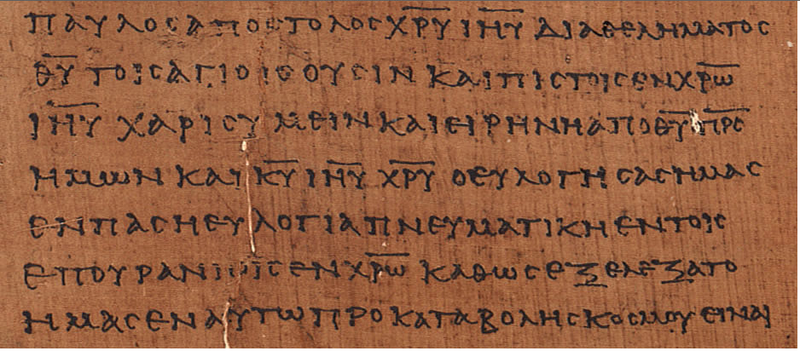 ΠΑΥΛΟCΑΠΟCΤΟΛΟCΧ̅Ρ̅Υ̅ Ι̅Η̅Υ̅ ΔΙΑΘΕΛΗΜΑΤΟC
Θ̅Υ̅ ΤΟΙCΑΓΙΟΙCΟΥCΙΝ ΚΑΙΠΙCΤΟΙCΕΝΧ̅Ρ̅Ω̅
Ι̅Η̅Υ̅ ΧΑΡΙCΥΜΕΙΝΚΑΙΕΙΡΗΝΗΑΠΟΘ̅Υ̅ Π̅Ρ̅C̅
ΗΜΩΝ ΚΑΙ Κ̅Υ̅ Ι̅Η̅Υ̅ Χ̅Ρ̅Υ̅ ΟΕΥΛΟΓΗCΑCΗΜΑC
ΕΝΠΑCΗΕΥΛΟΓΙΑΠΝΕΥΜΑΤΙΚΗΕΝΤΟΙC
ΕΠΟΥΡΑΝΙΟΙCΕΝΧ̅Ρ̅Ω̅ ΚΑΘΩCΕΞΕΛΕΞΑΤΟ
ΗΜΑCΕΝΑΥΤΩΠΡΟΚΑΤΑΒΟΛΗCΚΟCΜΟΥΕΙΝΑΙ